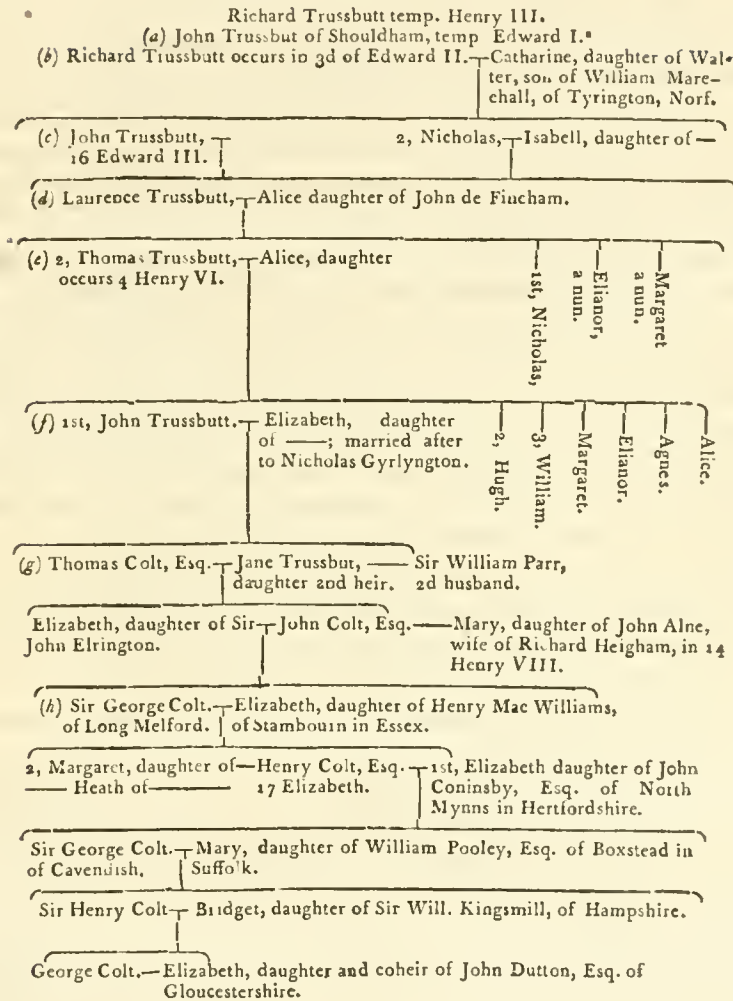 Richard Trussbutt temp. Henry III.
(a) John Trussbut of Shouldham, temp Edward I.
(b) Richard Trussbutt occurs in 3d of Edward II. Catharine, daughter of Wal-
ter, son of William Mare-
chall, of Tyrington, Norf.
(c) John Trussbutt,
16 Edward III.
2, Nicholas, Isabell, daughter of —
(d) Laurence Trussbutt, Alice daughter of John de Fincham.
(e) 2, Thomas Trussbutt,
occurs 4 Henry VI.
Alice, daughter
1st, Nicholas,
Elianor,
a nun.
Margaret
a nun.
(f) 1st, John Trussbutt.
Elizabeth, daughter
of ——; married after
to Nicholas Gyrlyngton.
2, Hugh.
3, William.
Margaret.
Elianor.
Agnes.
Alice.
(g) Thomas Colt, Esq.
Jane Trussbut,
daughter and heir.
Sir William Parr,
2d husband.
Elizabeth, daughter of Sir
John Elrington.
John Colt, Esq.
Mary, daughter of John Alne,
wife of Richard Heigham, in 14
Henry VIII.
(h) Sir George Colt.
of Long Melford.
Elizabeth, daughter of Henry Mac Williams,
of Stambouin in Essex.
2, Margaret, daughter of
—— Heath of ———
Henry Colt, Esq.
17 Elizabeth.
1st, Elizabeth daughter of John
Coninsby, Esq. of North
Mynns in Hertfordshire.
Sir George Colt.
of Cavendish.
Mary, daughter of William Pooley, Esq. of Boxstead in
Suffolk.
Sir Henry Colt
Bridget, daughter of Sir Will. Kingsmill, of Hampshire.
George Colt.
Elizabeth, daughter and coheir of John Dutton, Esq. of
Gloucestershire.